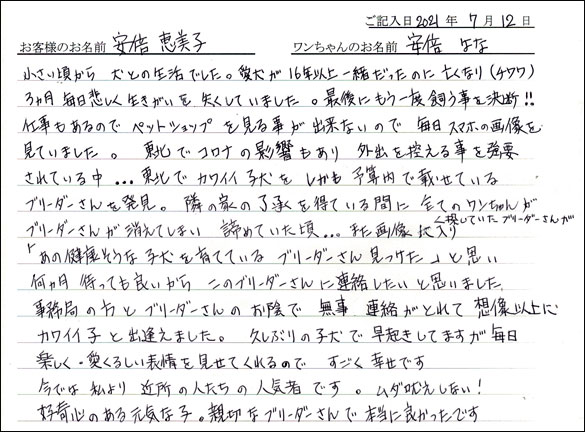 ご記入日 2021 年 7 月 12 日
お客様のお名前 安倍 恵美子 ワンちゃんのお名前 安倍 なな
小さい頃から 犬との生活でした。愛犬が 16年以上一緒だったのに 亡くなり(チワワ)
3ヵ月 毎日悲しく 生きがいを 失くしていました。最後にもう一度 飼う事を決断!!
仕事もあるので ペットショップ を見る事が 出来ないので 毎日 スマホの画像を
見ていました。 東北で コロナの影響もあり 外出を控える事を 強要
されている中 ... 東北で カワイイ 子犬を しかも 予算内で 載せている
ブリーダーさんを発見。 隣の家の了承を得ている間に 全てのワンちゃんが
ブリーダーさんが 消えてしまい 諦めていた頃... また画像 に入り
く探していたブリーダーさんが
「あの健康そうな 子犬を育てている ブリーダーさん 見つけた」 と思い
何ヵ月 待っても良いから このブリーダーさんに連絡したいと思いました
事務局の方と ブリーダーさんの お陰で 無事 連絡がとれて 想像以上に
カワイイ子と出逢えました。 久しぶりの子犬で 早起きしてますが 毎日
楽しく・愛くるしい表情を見せてくれるので すごく 幸せです
今では 私より 近所の人たちの人気者 です。 ムダ吠えしない!
好奇心のある元気な子。親切なブリーダーさんで本当に良かったです